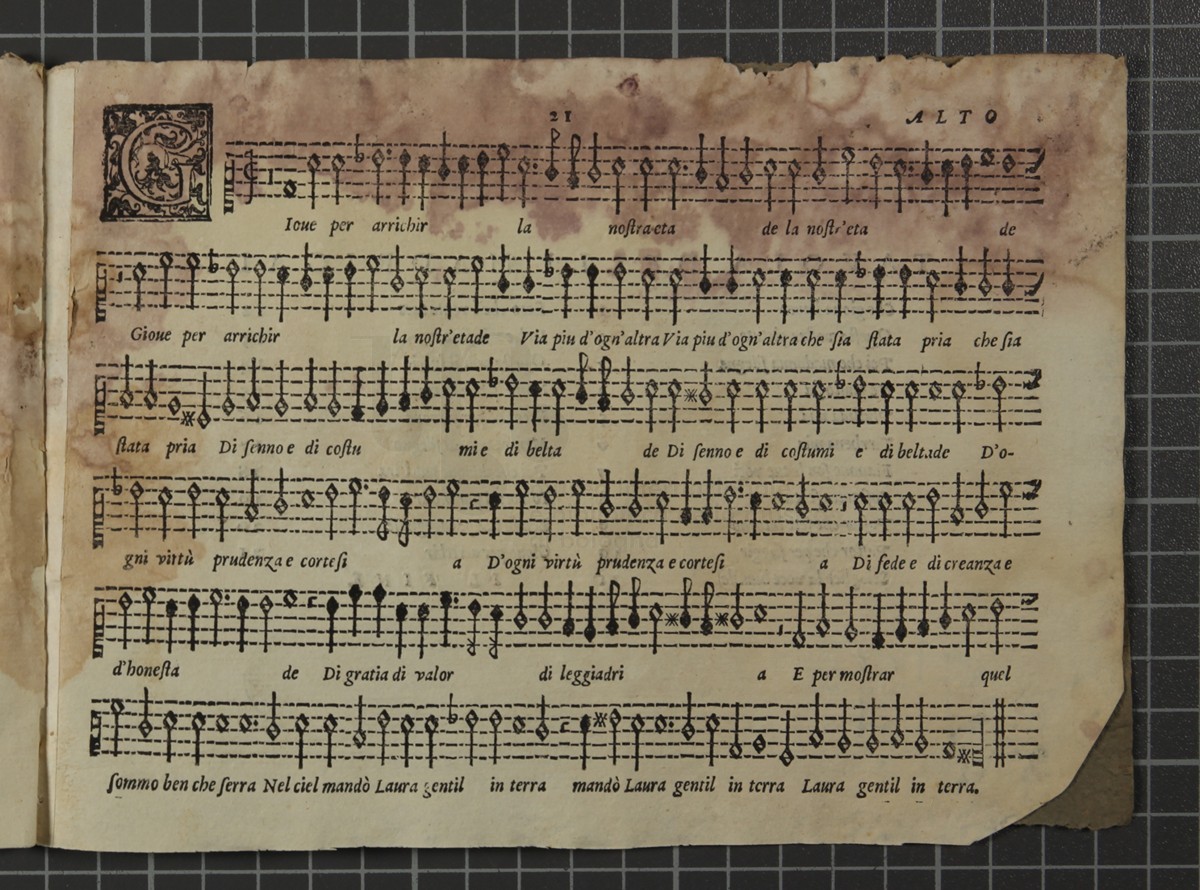 21
ALTO
GIoue per arrichir la nostra eta de la nostr'eta de
Gioue per arrichir la nostr'etade Via piu d'ogn'altra Via piu d'ogn'altra che ſia ſtata pria che ſia
ſtata pria Di ſenno e di coſtu mi e di belta de Di ſenno e di coſtumi e di beltade D'o-
gni virtù prudenza e corteſi a D'ogni virtù prudenza e corteſi a Di fede e di creanza e
d'honeſta de Di gratia di valor di leggiadri a E per moſtrar quel
ſommo ben che ſerra Nel ciel mandò Laura gentil in terra mandò Laura gentil in terra Laura gentil in terra.